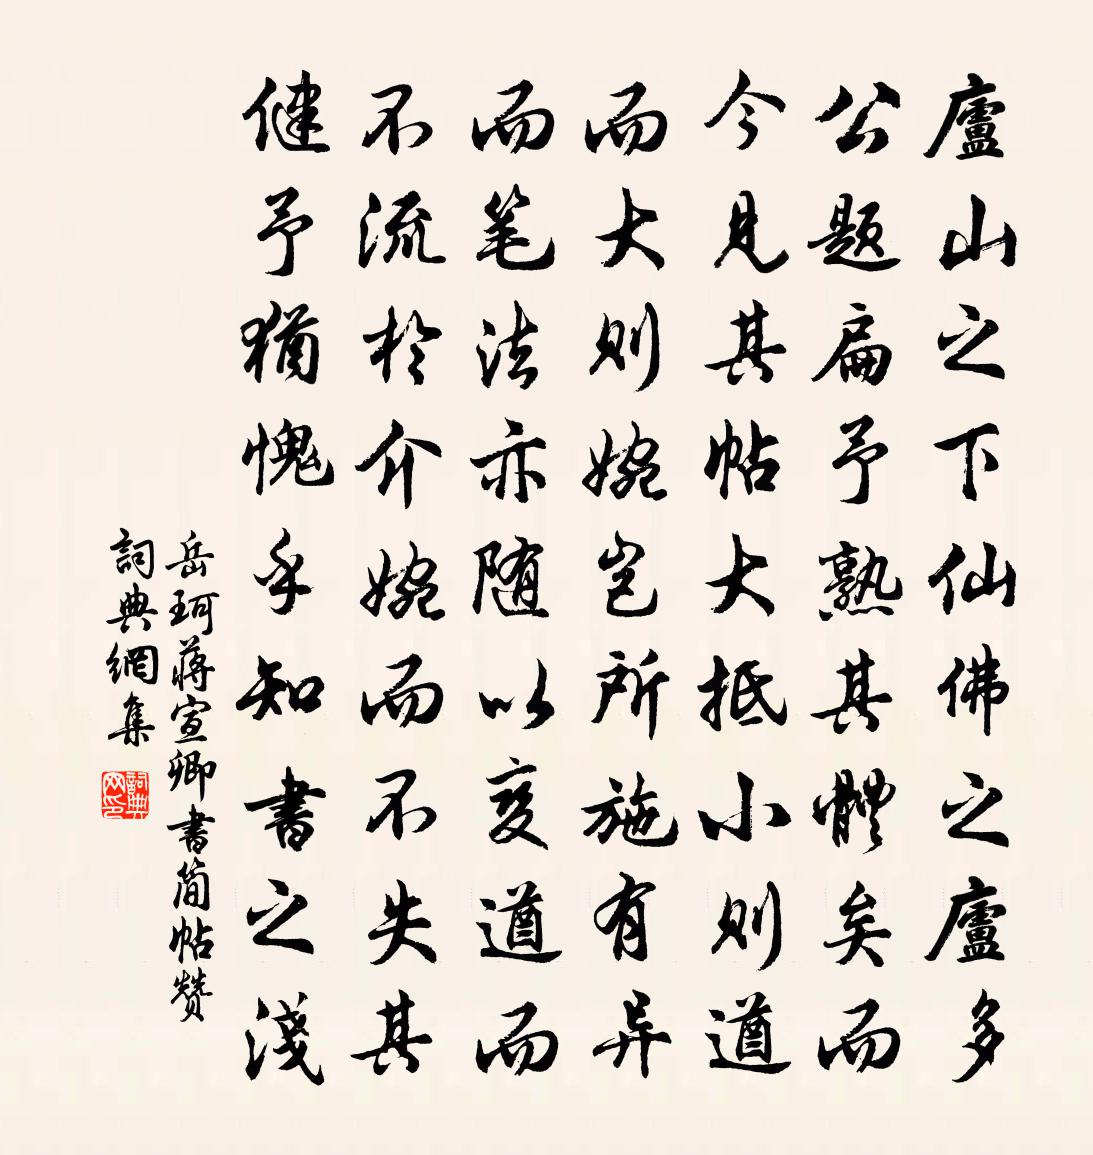 廬山之下仙佛之廬多
公题扁予熟其體矣而
今見其帖大抵小则遒
而大则婉岂所施有异
而笔法亦随以变遒而
不流於介婉而不失其
健予猶愧乎知書之淺
岳珂蔣宣卿書简帖赞
詞典網集
詞典网印